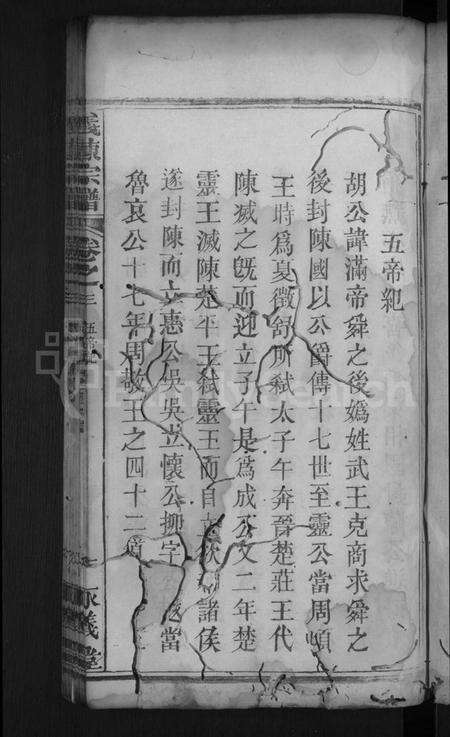 五帝紀
胡公諱滿帝舜之後嬀姓武王克商求舜之
後封陳國以公爵傳十七世至靈公當周頃
王時爲夏徵舒所弑太子午奔晉楚莊王代
陳滅之旣而迎立子午是爲成公又二年楚
靈王滅陳楚平王弑靈王而自立諸侯
遂封陳而立惠公吳吳立懷公柳字當
魯哀公十七年周敬王之四十二
義陳宗譜
卷之三
五帝
義堂
FamilySearch